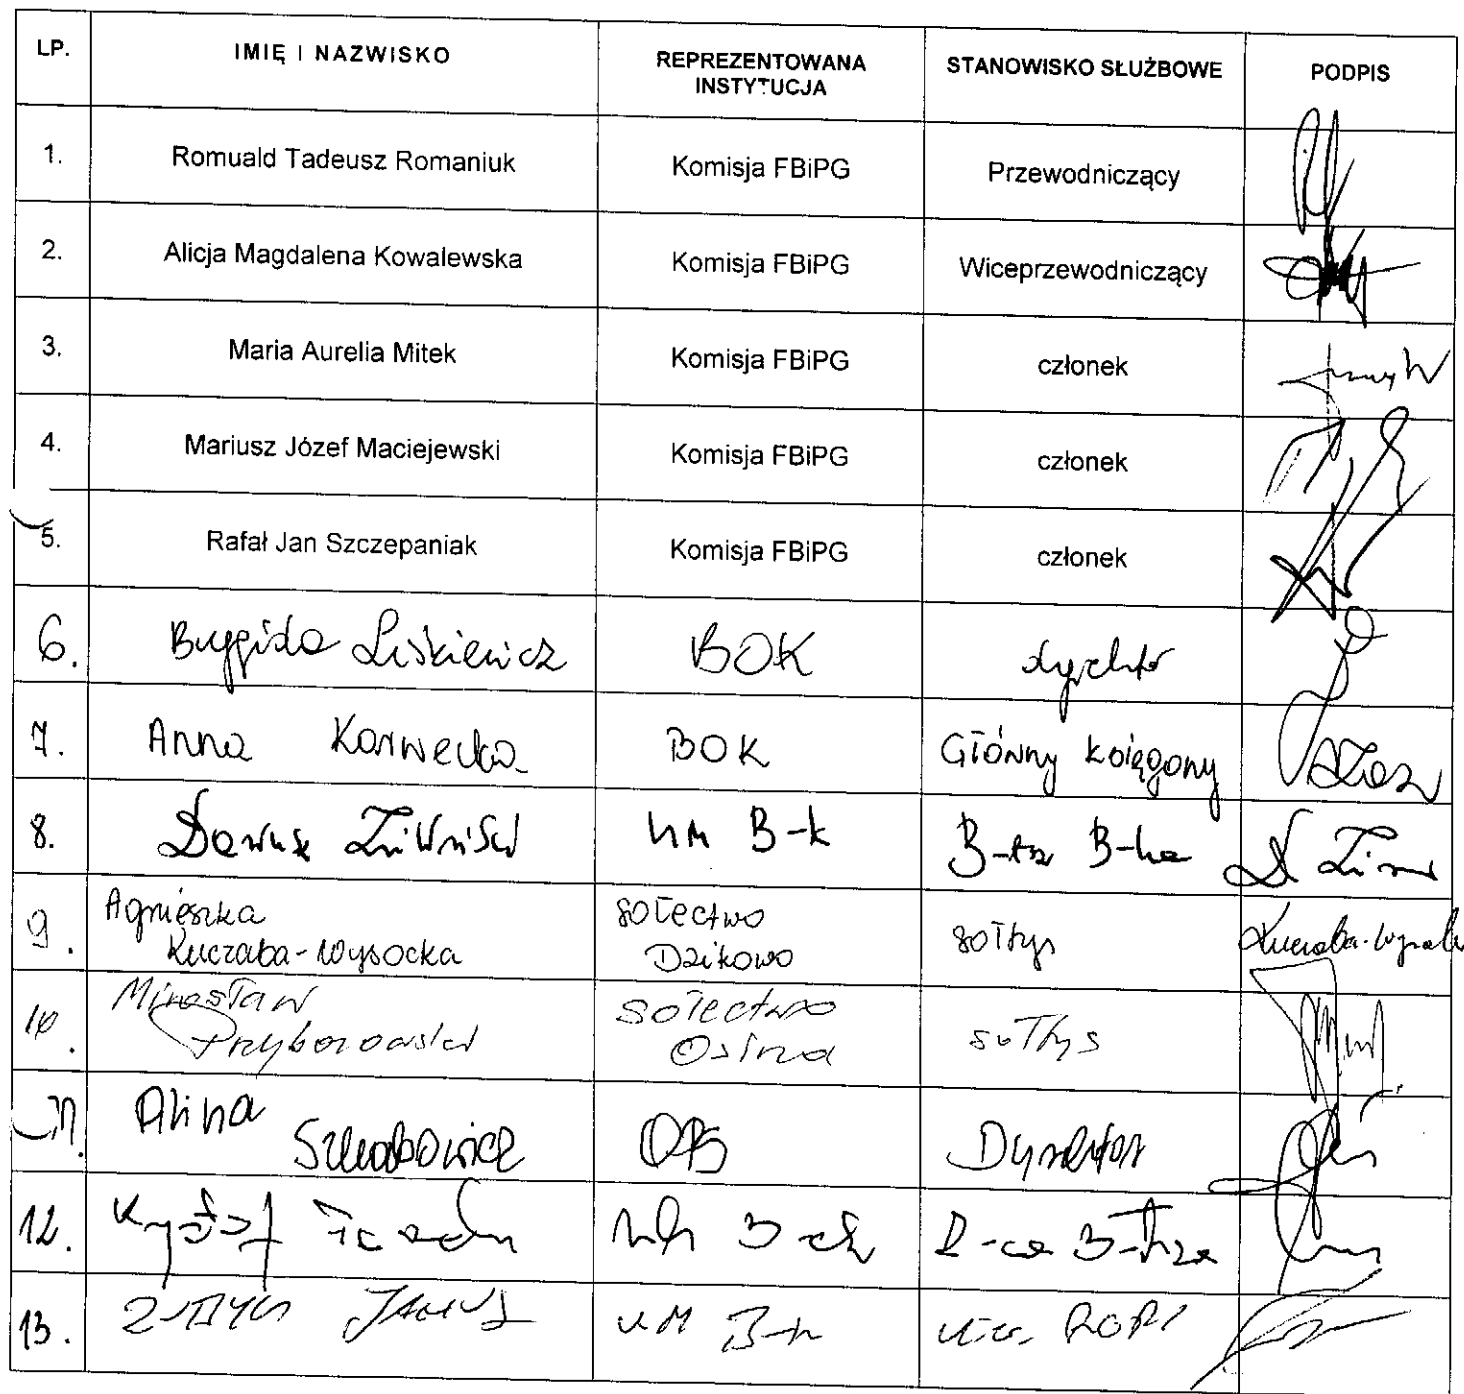 LP. IMIĘ I NAZWISKO REPREZENTOWANA INSTYTUCJA STANOWISKO SŁUŻBOWE PODPIS
1. Romuald Tadeusz Romaniuk Komisja FBiPG Przewodniczący
2. Alicja Magdalena Kowalewska Komisja FBiPG Wiceprzewodniczący
3. Maria Aurelia Mitek Komisja FBiPG członek
4. Mariusz Józef Maciejewski Komisja FBiPG członek
5. Rafał Jan Szczepaniak Komisja FBiPG członek
6. Brygida Liśkiewicz BOK dyrektor
7. Anna Karwecka BOK Główny księgowy
8. Dariusz UM B-k
9. Agnieszka Kuczaba-Wysocka sołectwo Dzikowo sołtys Kuczaba-Wysocka
10. Mirosław Przyborowski sołectwo Osina sołtys
11. Alina OPS Dyrektor
12. Z-ca B-trza
13. UM B-k